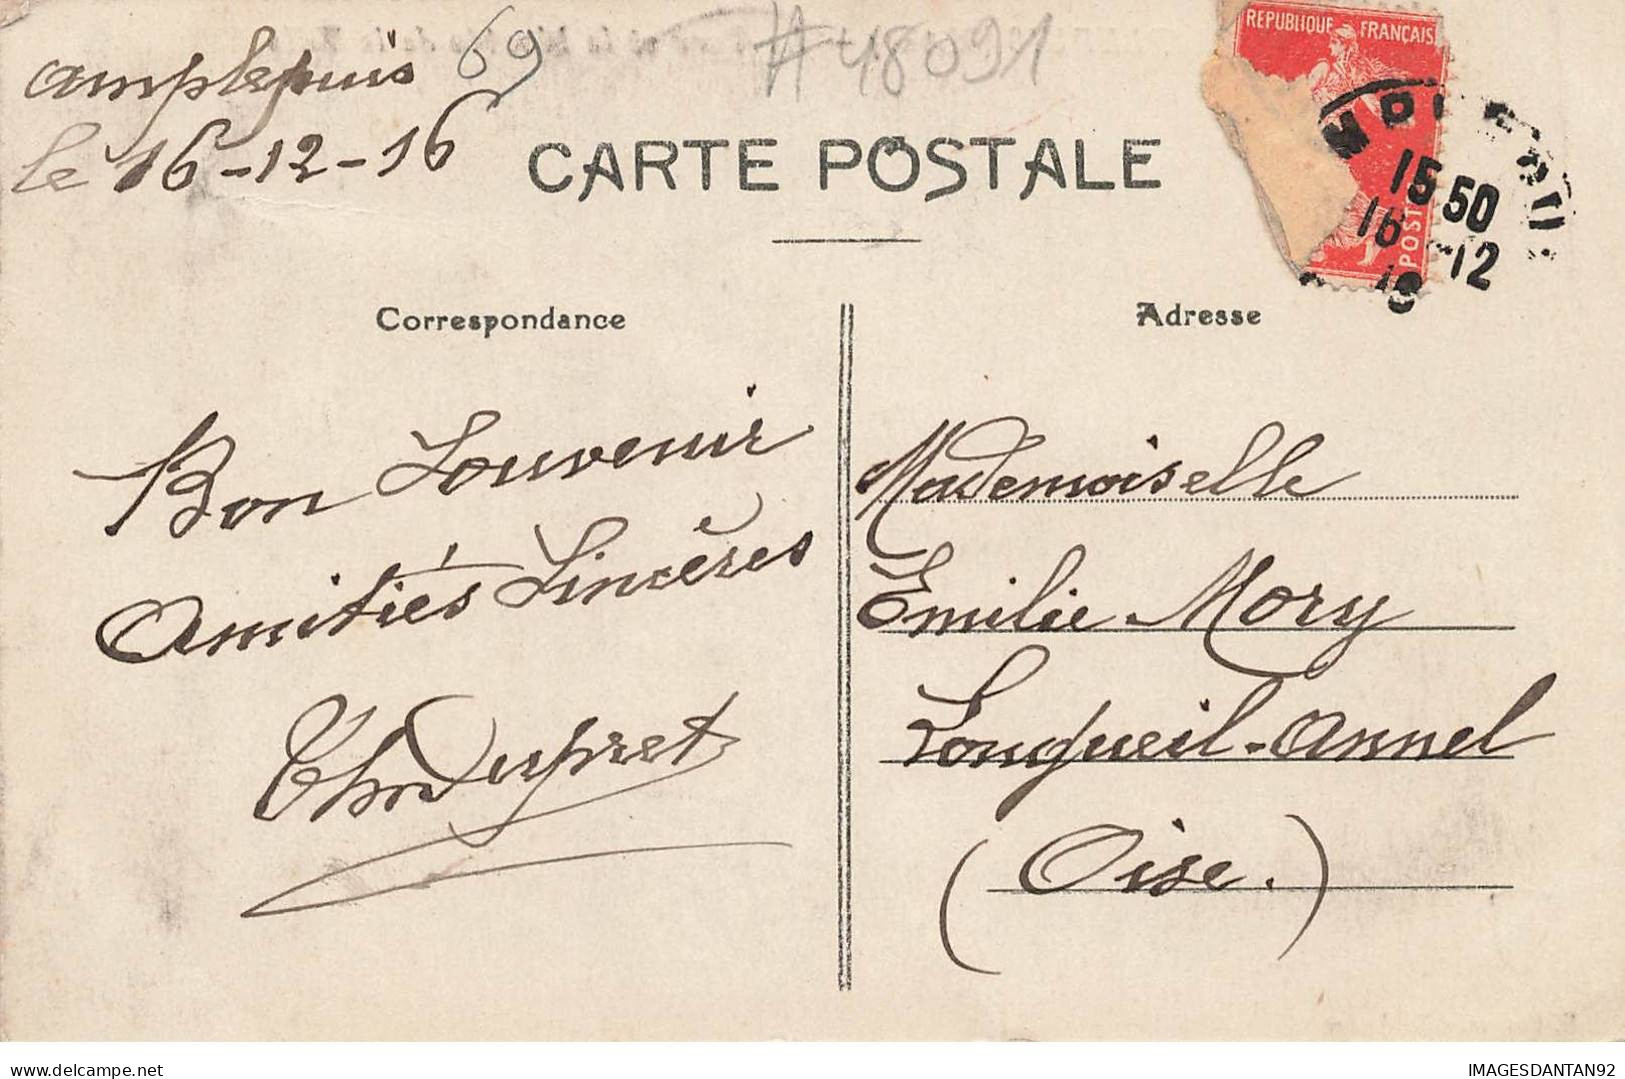 amplepuis 69
#48091
le 16-12-16
CARTE POSTALE
REPUBLIQUE FRANÇAIS
POST
15 50
16 -12
Correspondance
Adresse
Bon Souvenir
Amitiés Sincères
Mademoiselle
Emilie Mory
Longueil-Annel
(Oise.)
IMAGESDANTAN92